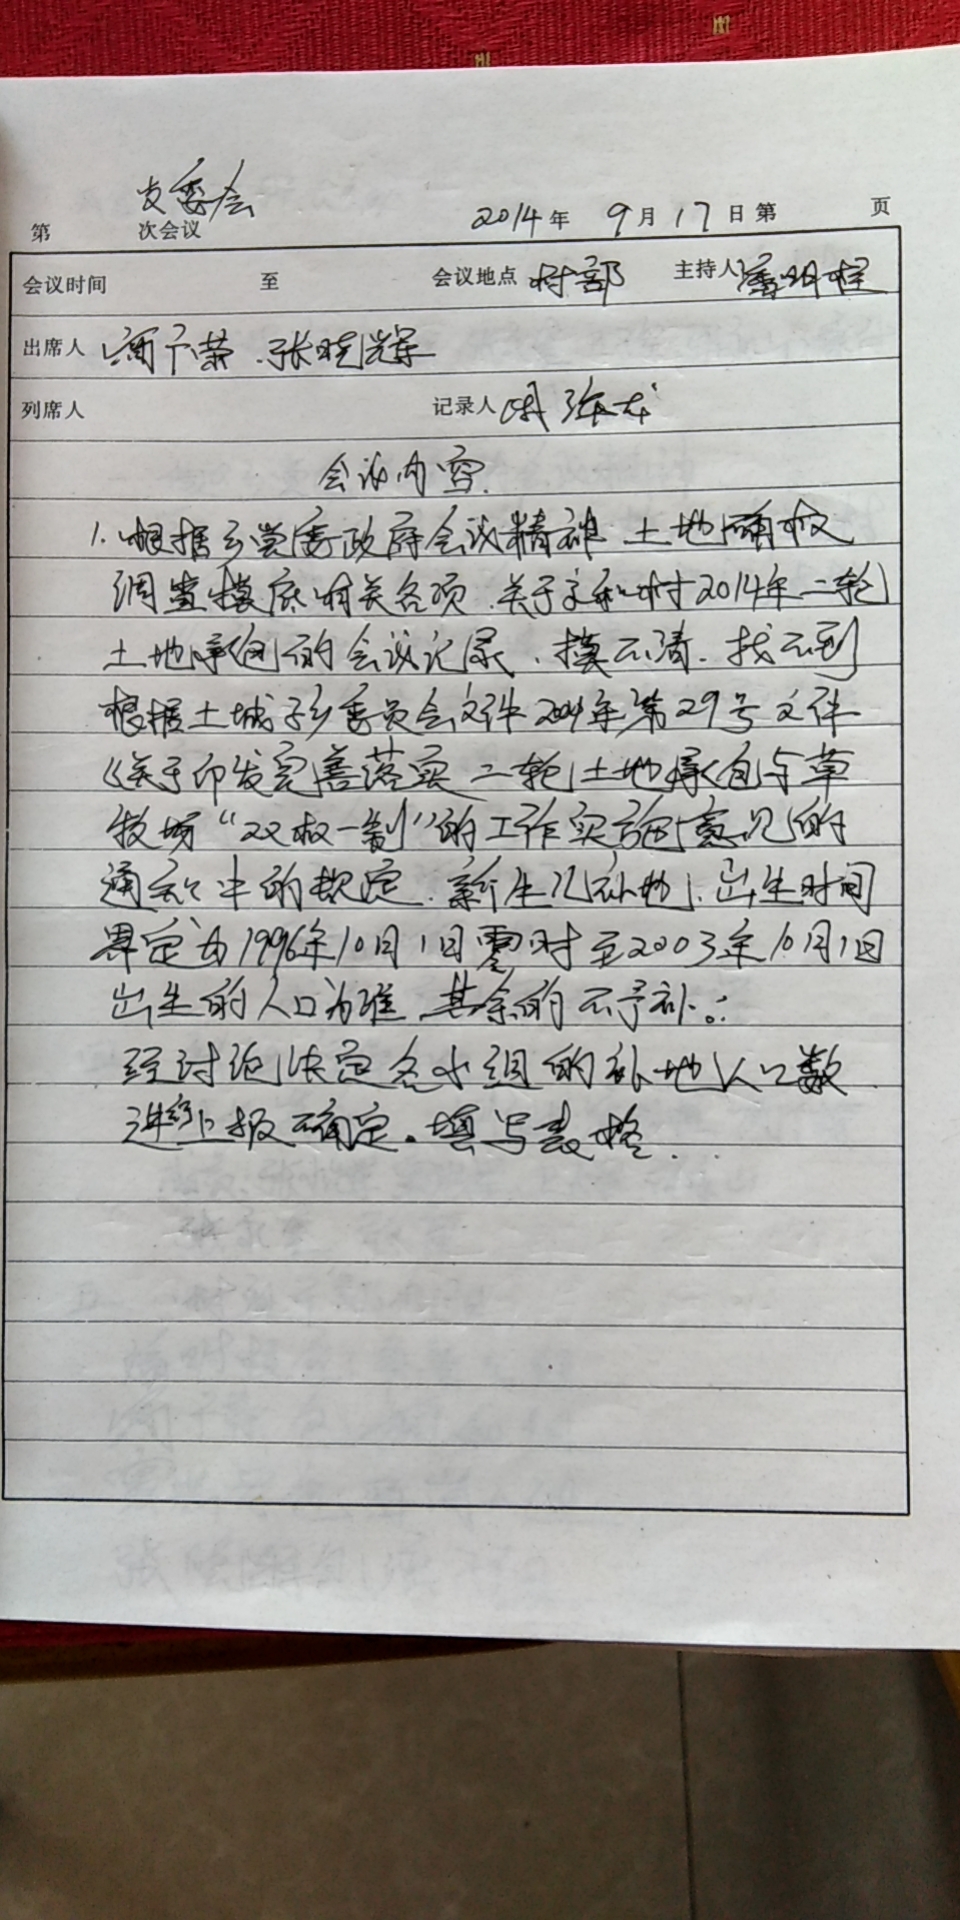 支委会
第 次会议 2014年 9月17日 第 页
会议时间 至 会议地点 村部 主持人
出席人 张晓辉
列席人 记录人
会议内容
1. 根据乡党委政府会议精神 土地确权
调查摸底有关各项.关于 村2014年二轮
土地承包的会议记录、摸不清.找不到
根据土城子乡委员会文件2004年第29号文件
《关于印发完善落实二轮土地承包与草
牧场“双权一制”的工作实施意见的
通知》中的规定.新生儿补地.出生时间
界定为1996年10月1日零时至2003年10月1日
出生的人口为准.其余的不予补。
经讨论决定各小组的补地人口数
进行上报确定。填写表格.